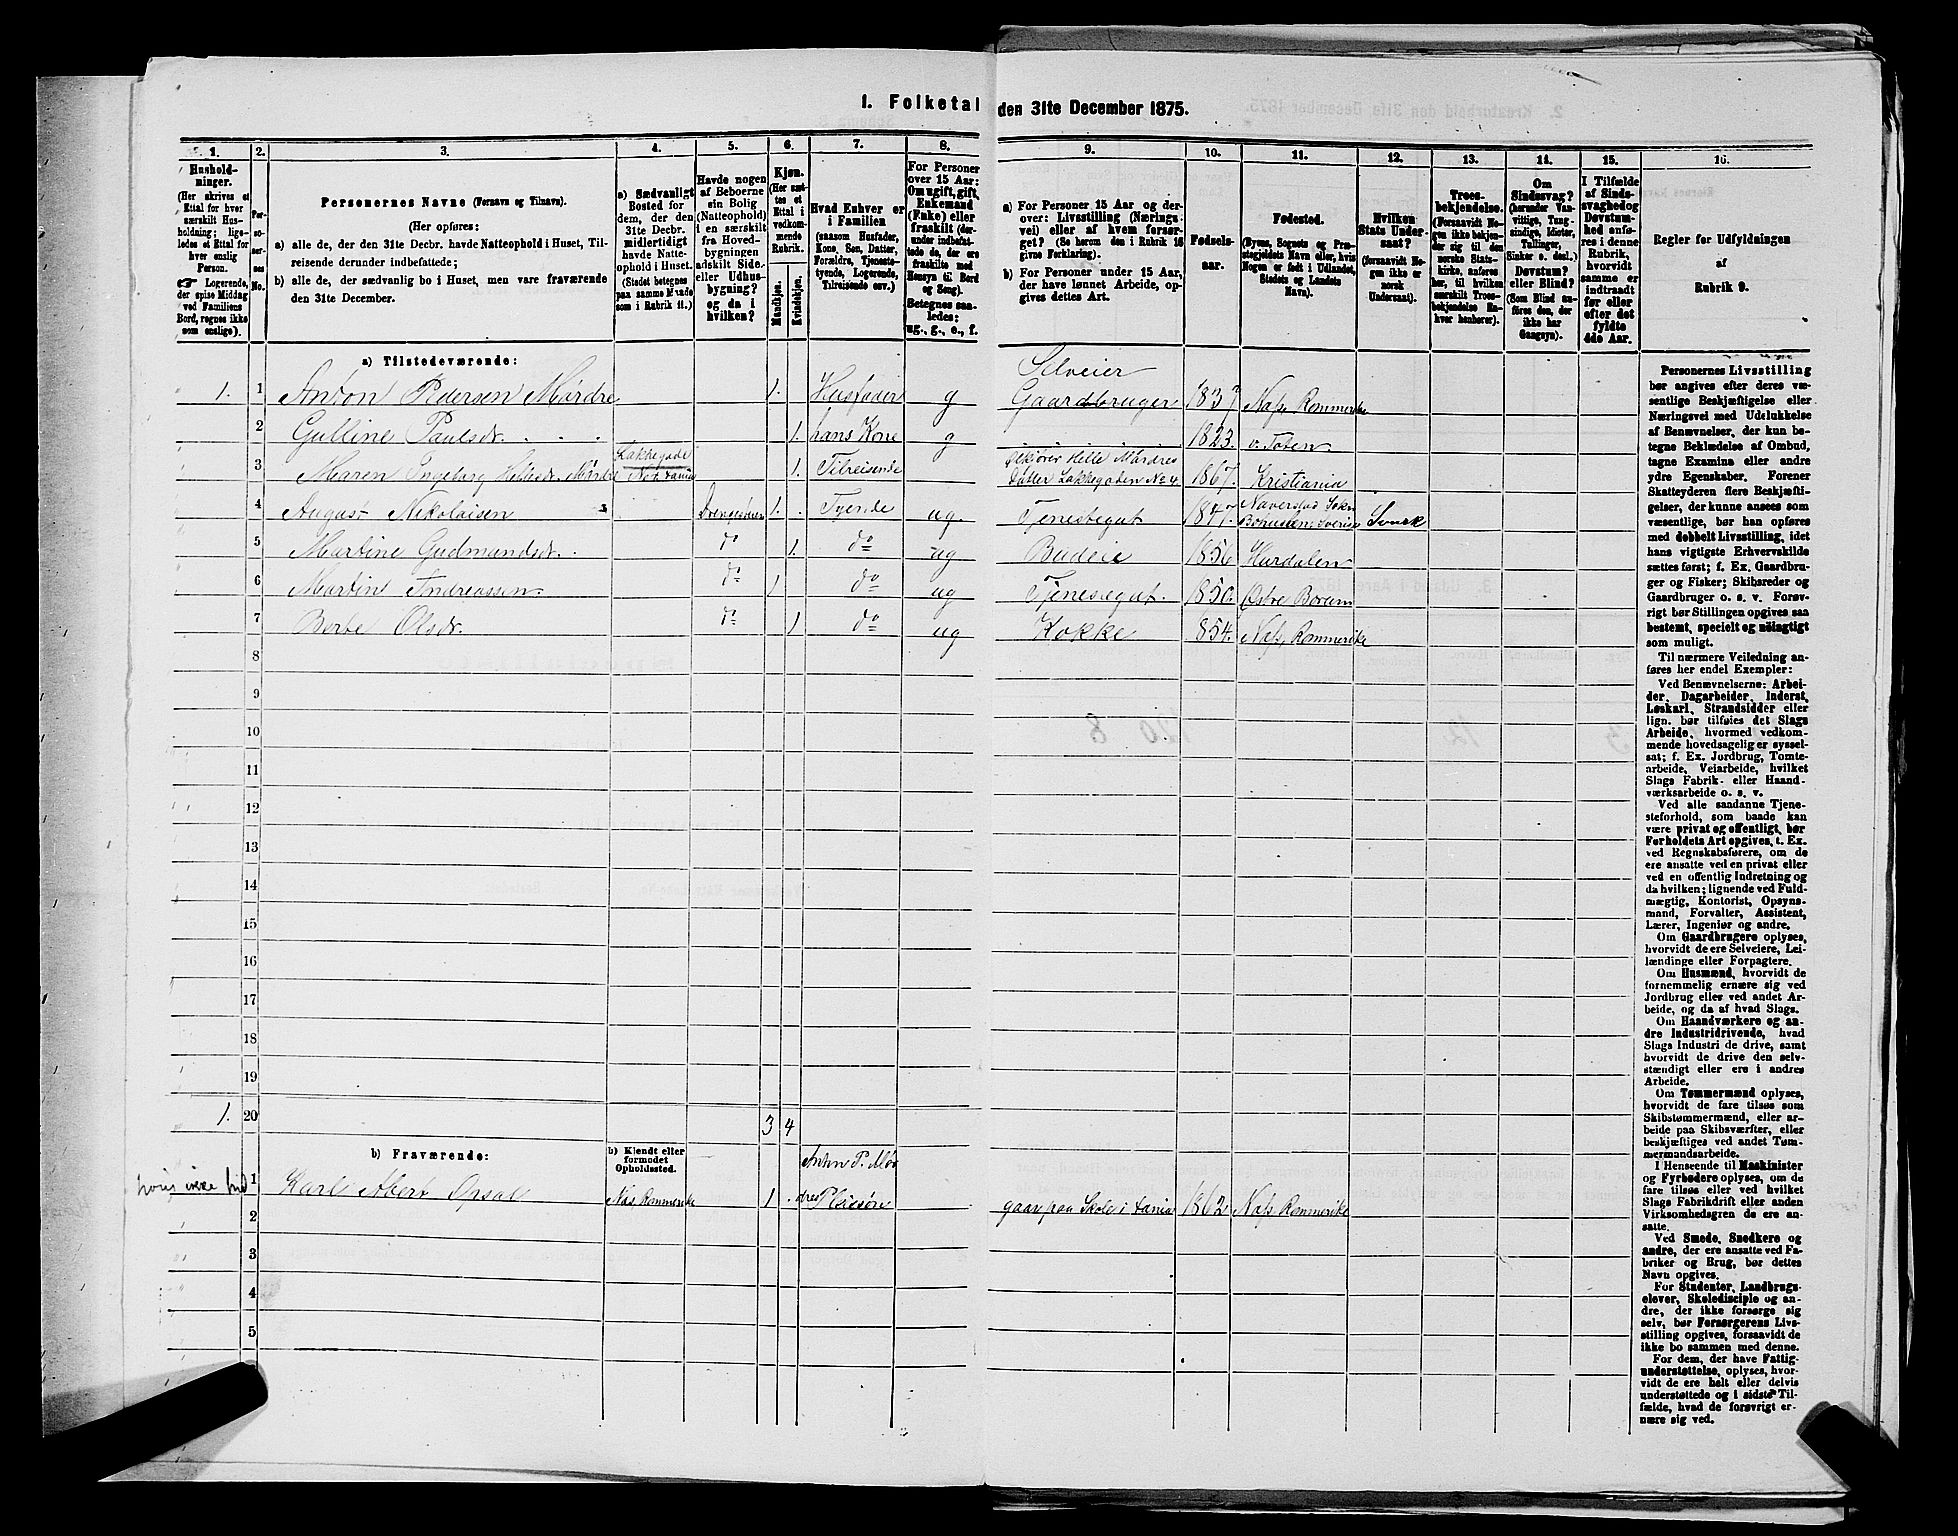 1. Folketal den 31te December 1875.
1. 2. 3. 4. 5. 6. 7. 8. 9. 10. 11. 12. 13. 14. 15. 16.
Husholdninger.
(Her skrives et Ettal for hver særskilt Husholdning; ligeledes et Ettal for hver enslig Person.
☛ Logerende, der spise Middag ved Familiens Bord, regnes ikke som enslige).
Personernes No.
Personernes Navne (Fornavn og Tilnavn).
(Her opføres:
a) alle de, der den 31te Decbr. havde Natteophold i Huset, Tilreisende derunder indbefattede;
b) alle de, der sædvanlig bo i Huset, men vare fraværende den 31te December.
a) Sædvanligt Bosted for dem, der den 31te Decbr. midlertidigt havde Natteophold i Huset. (Stedet betegnes paa samme Maade som i Rubrik 11.)
Havde nogen af Beboerne sin Bolig (Natteophold) i en særskilt fra Hovedbygningen adskilt Side- eller Udhusbygning? og da i hvilken?
Kjøn.
(Her sættes et Ettal i vedkommende Rubrik.
Mandkjøn.
Kvindekjøn.
Hvad Enhver er i Familien
(saasom Husfader, Kone, Søn, Datter, Forældre, Tjenestetyende, Logerende, Tilreisende osv.)
For Personer over 15 Aar: Om ugift, gift, Enkemand (Enke) eller fraskilt (derunder indbefattede de, der ere fraskilte med Hensyn til Bord og Seng).
Betegnes saaledes: ug., g., e., f.
a) For Personer 15 Aar og derover: Livsstilling (Næringsvei) eller af hvem forsørget? (Se herom den i Rubrik 16 givne Forklaring).
b) For Personer under 15 Aar, der have lønnet Arbeide, opgives dettes Art.
Fødselsaar.
Fødested.
(Byens, Sognets og Præstegjeldets Navn eller, hvis Nogen er født i Udlandet, Stedets og Landets Navn).
Hvilken Stats Undersaat?
(forsaavidt Nogen ikke er norsk Undersaat).
Troesbekjendelse.
(Forsaavidt Nogen ikke bekjender sig til den norske Statskirke, anføres her, til hvilken særskilt Troesbekjendelse Enhver henhører).
Om Sindssvag?
(herunder Vanvittige, Tungsindige, Idioter, Tullinger, Sinker o. desl.)
Døvstum? eller Blind?
(Som Blind anføres den, der ikke har Gangsyn).
I Tilfælde af Sindssvaghed og Døvstumhed anføres i denne Rubrik, hvorvidt samme er indtraadt før eller efter det fyldte 4de Aar.
Regler for Udfyldningen
af
Rubrik 9.
a) Tilstedeværende:
1. 1 Anton Pedersen Mørdre 1. Husfader g Selveier Gaardbruger 1837 Næs Rommerike
2 Gulline Paulsdr. 1. hans Kone g 1823. v. Toten
3 Maren Ingeborg Mørdre Lakkegade 1. Tilreisende Helle Mørdres Datter Lakkegaden No 4 1867. Kristiania
4 August Nikolaisen 1. Tyende ug. Tjenestegut 1847. Naverstad Sokn Svensk
5 Martine Gudmundsdr. do 1. do ug Budeie 1856 Hurdalen
6 Martin Andreassen do 1 do ug Tjenestegut. 1850. Østre
7 Berte Olsdr. do 1 do ug Kokke 854. Næs, Rommerike
8
9
10
11
12
13
14
15
16
17
18
19
1. 20 3 4
b) Fraværende:
b) Kjendt eller formodet Opholdssted.
Anton P. Mør
1 Karl Albert Opsal Næs Rommerike 1 dres Pleiesøn gaar paa Skole i 1862 Næs Rommerike
2
3
4
5
Personernes Livsstilling
bør angives efter deres væ-
sentlige Beskjæftigelse eller
Næringsvei med Udelukkelse
af Benævnelser, der kun be-
tegne Beklædelse af Ombud,
tagne Examina eller andre
ydre Egenskaber. Forener
Skatteyderen flere Beskjæfti-
gelser, der kunne ansees som
væsentlige, bør han opføres
med dobbelt Livsstilling, idet
hans vigtigste Erhvervskilde
sættes først; f. Ex. Gaardbru-
ger og Fisker; Skibsreder og
Gaardbruger o. s. v. Forøv-
rigt bør Stillingen opgives saa
bestemt, specielt og nøiagtigt
som muligt.
Til nærmere Veiledning an-
føres her endel Exempler:
Ved Benævnelserne: Arbei-
der, Dagarbeider, Inderst,
Løskarl, Strandsidder eller
lign. bør tilføies det Slags
Arbeide, hvormed vedkom-
mende hovedsagelig er syssel-
sat; f. Ex. Jordbrug, Tomte-
arbeide, Veiarbeide, hvilket
Slags Fabrik- eller Haand-
værksarbeide o. s. v.
Ved alle saadanne Tjene-
steforhold, som baade kan
være privat og offentligt, bør
Forholdets Art opgives, t. Ex.
ved Regnskabsførere, om de
ere ansatte ved en privat eller
ved en offentlig Indretning og
da hvilken; lignende ved Fuld-
mægtig, Kontorist, Opsyns-
mand, Forvalter, Assistent,
Lærer, Ingeniør og andre.
Om Gaardbrugere oplyses,
hvorvidt de ere Selveiere, Lei-
lændinge eller Forpagtere.
Om Husmænd, hvorvidt de
fornemmelig ernære sig ved
Jordbrug eller ved andet Ar-
beide, og da af hvad Slags.
Om Haandværkere og an-
dre Industridrivende, hvad
Slags Industri de drive, samt
hvorvidt de drive den selv-
stændigt eller ere i andres
Arbeide.
Om Tømmermænd oplyses,
hvorvidt de fare tilsøs som
Skibstømmermænd, eller ar-
beide paa Skibsværfter, eller
beskjæftiges ved andet Tøm-
mermandsarbeide.
I Henseende til Maskinister
og Fyrbødere oplyses, om de
fare tilsøs eller ved hvilket
Slags Fabrikdrift eller anden
Virksomhedsgren de ere an-
satte.
Ved Smede, Snedkere og
andre, der ere ansatte ved Fa-
briker og Brug, bør dettes
Navn opgives.
For Studenter, Landbrugs-
elever, Skoledisciple og an-
dre, der ikke forsørge sig
selv, bør Forsørgerens Livs-
stilling opgives, forsaavidt de
ikke bo sammen med denne.
For dem, der have Fattig-
understøttelse, oplyses, hvor-
vidt de ere helt eller delvis
understøttede og i sidste Til-
fælde, hvad de forøvrigt er-
nære sig ved.